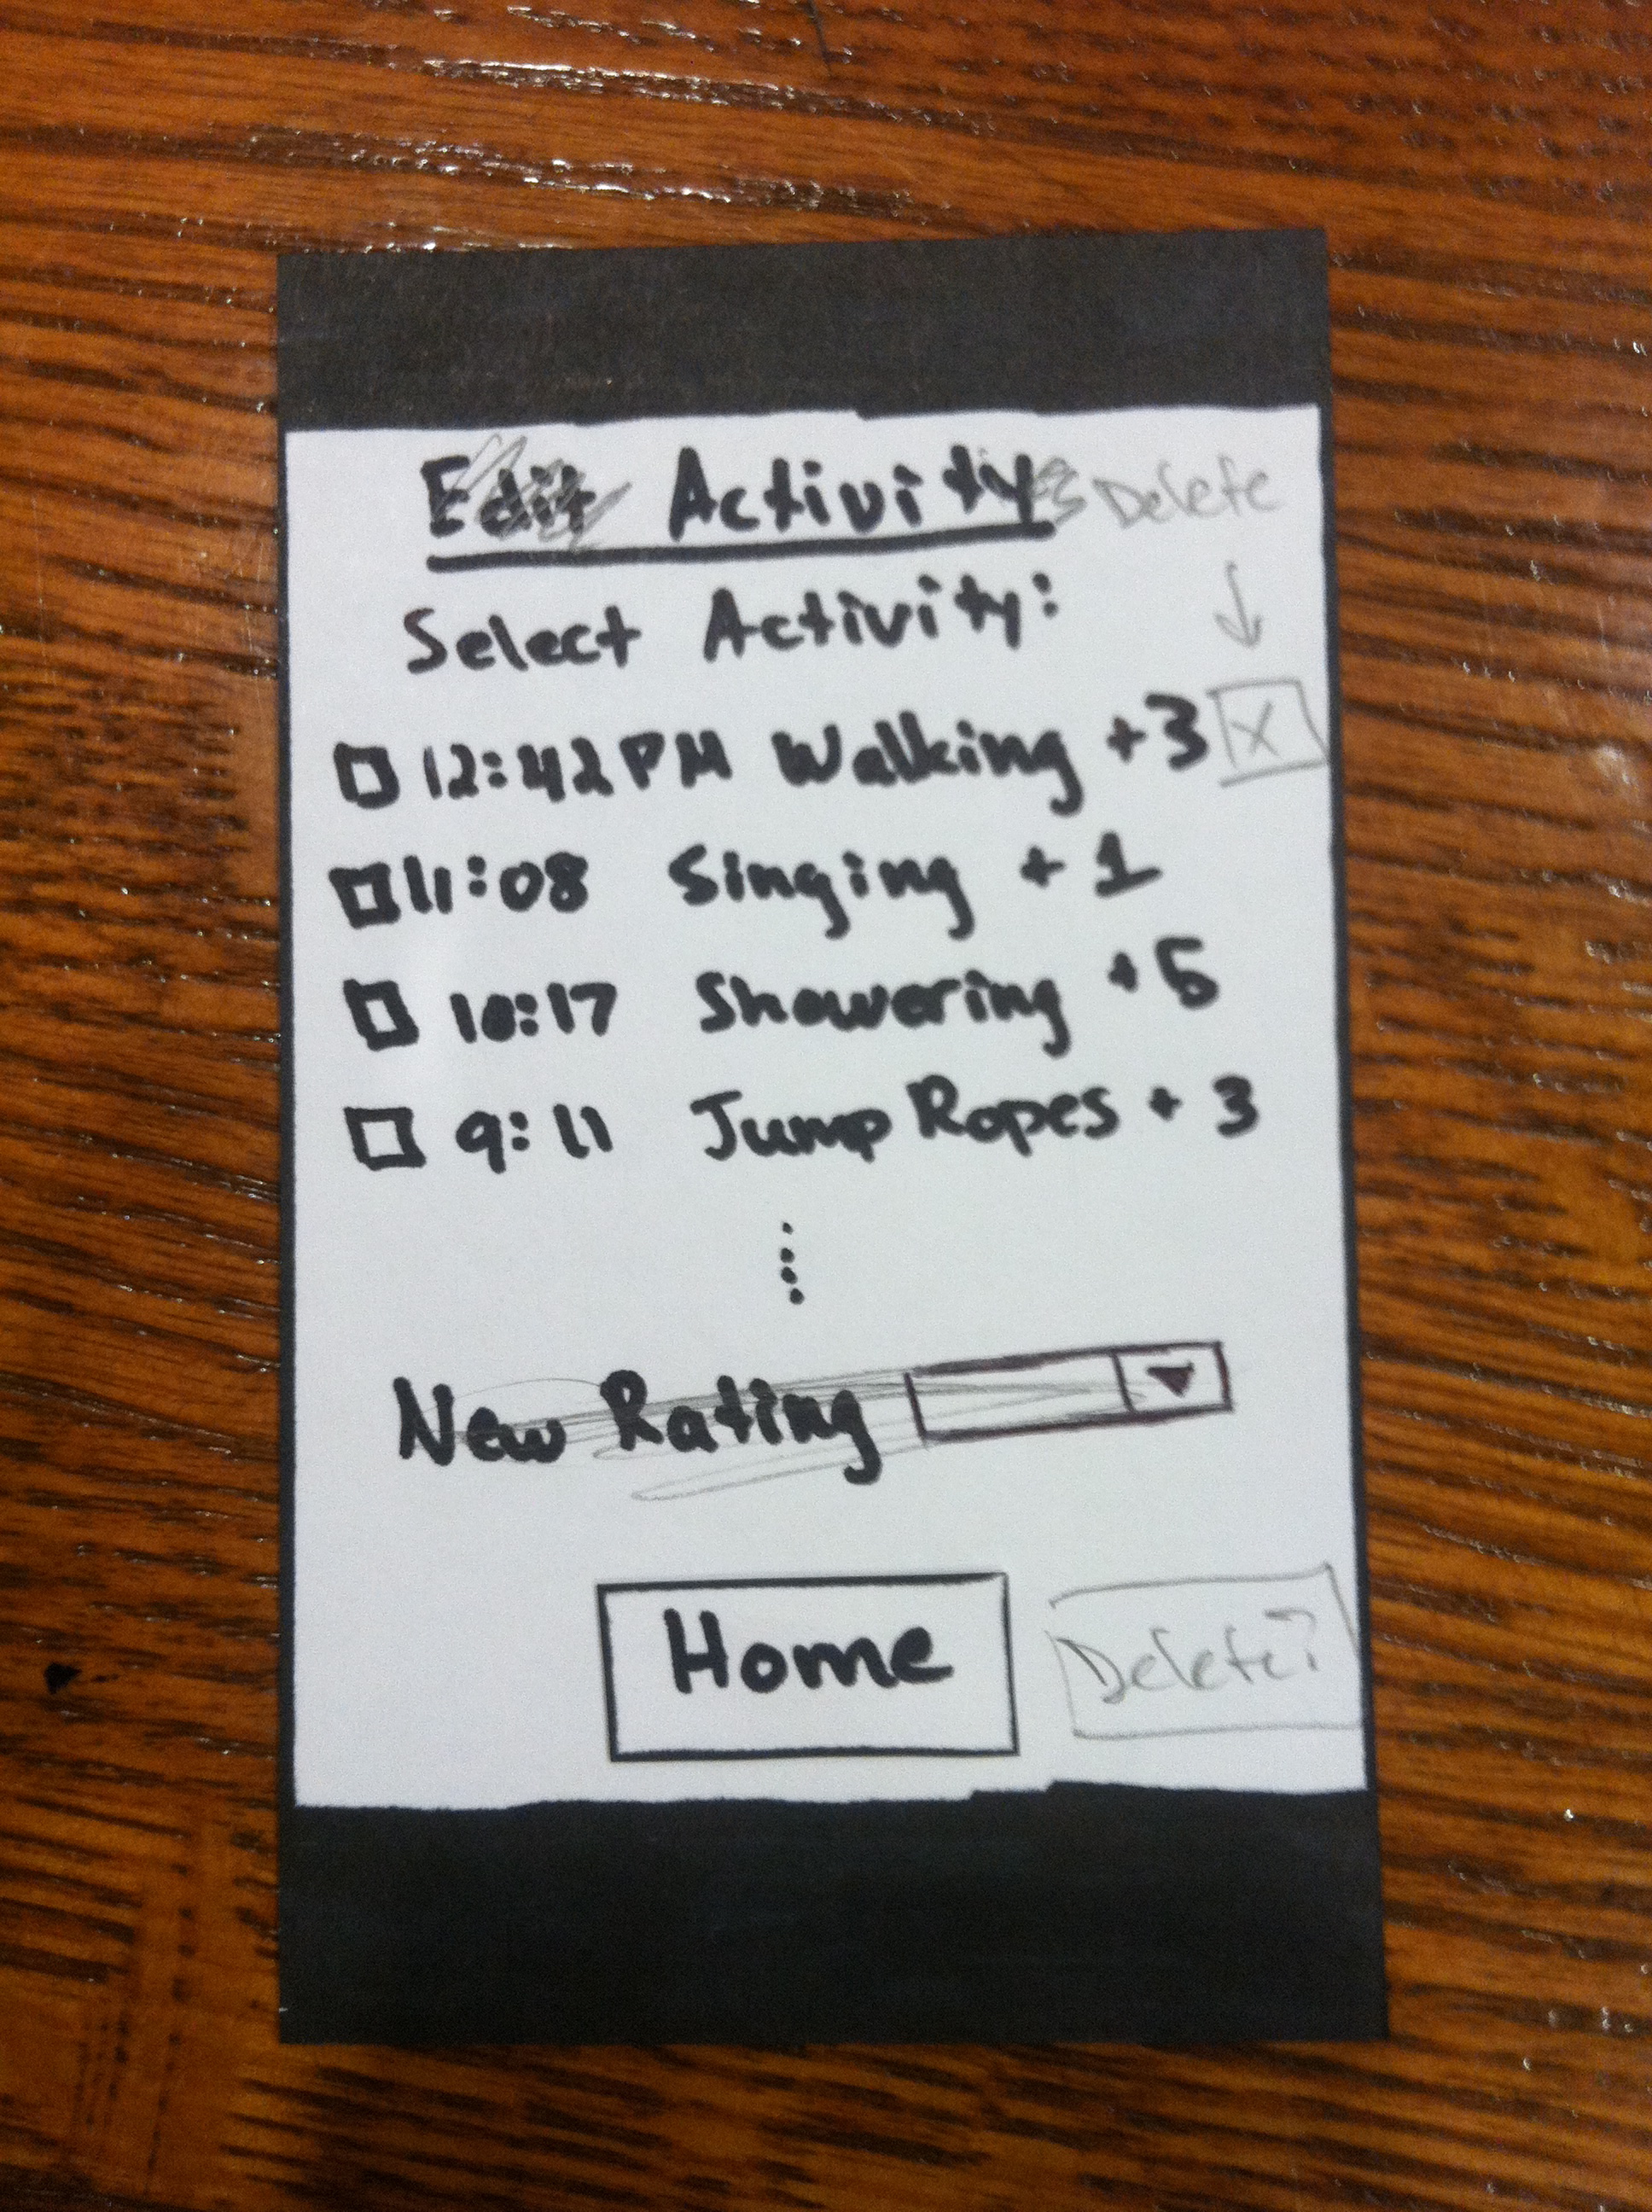 Edit Activity Delete
Select Activity:
12:42 PM Walking +3 X
11:08 Singing +1
10:17 Showering +5
9:11 Jump Ropes +3
New Rating
Home Delete?